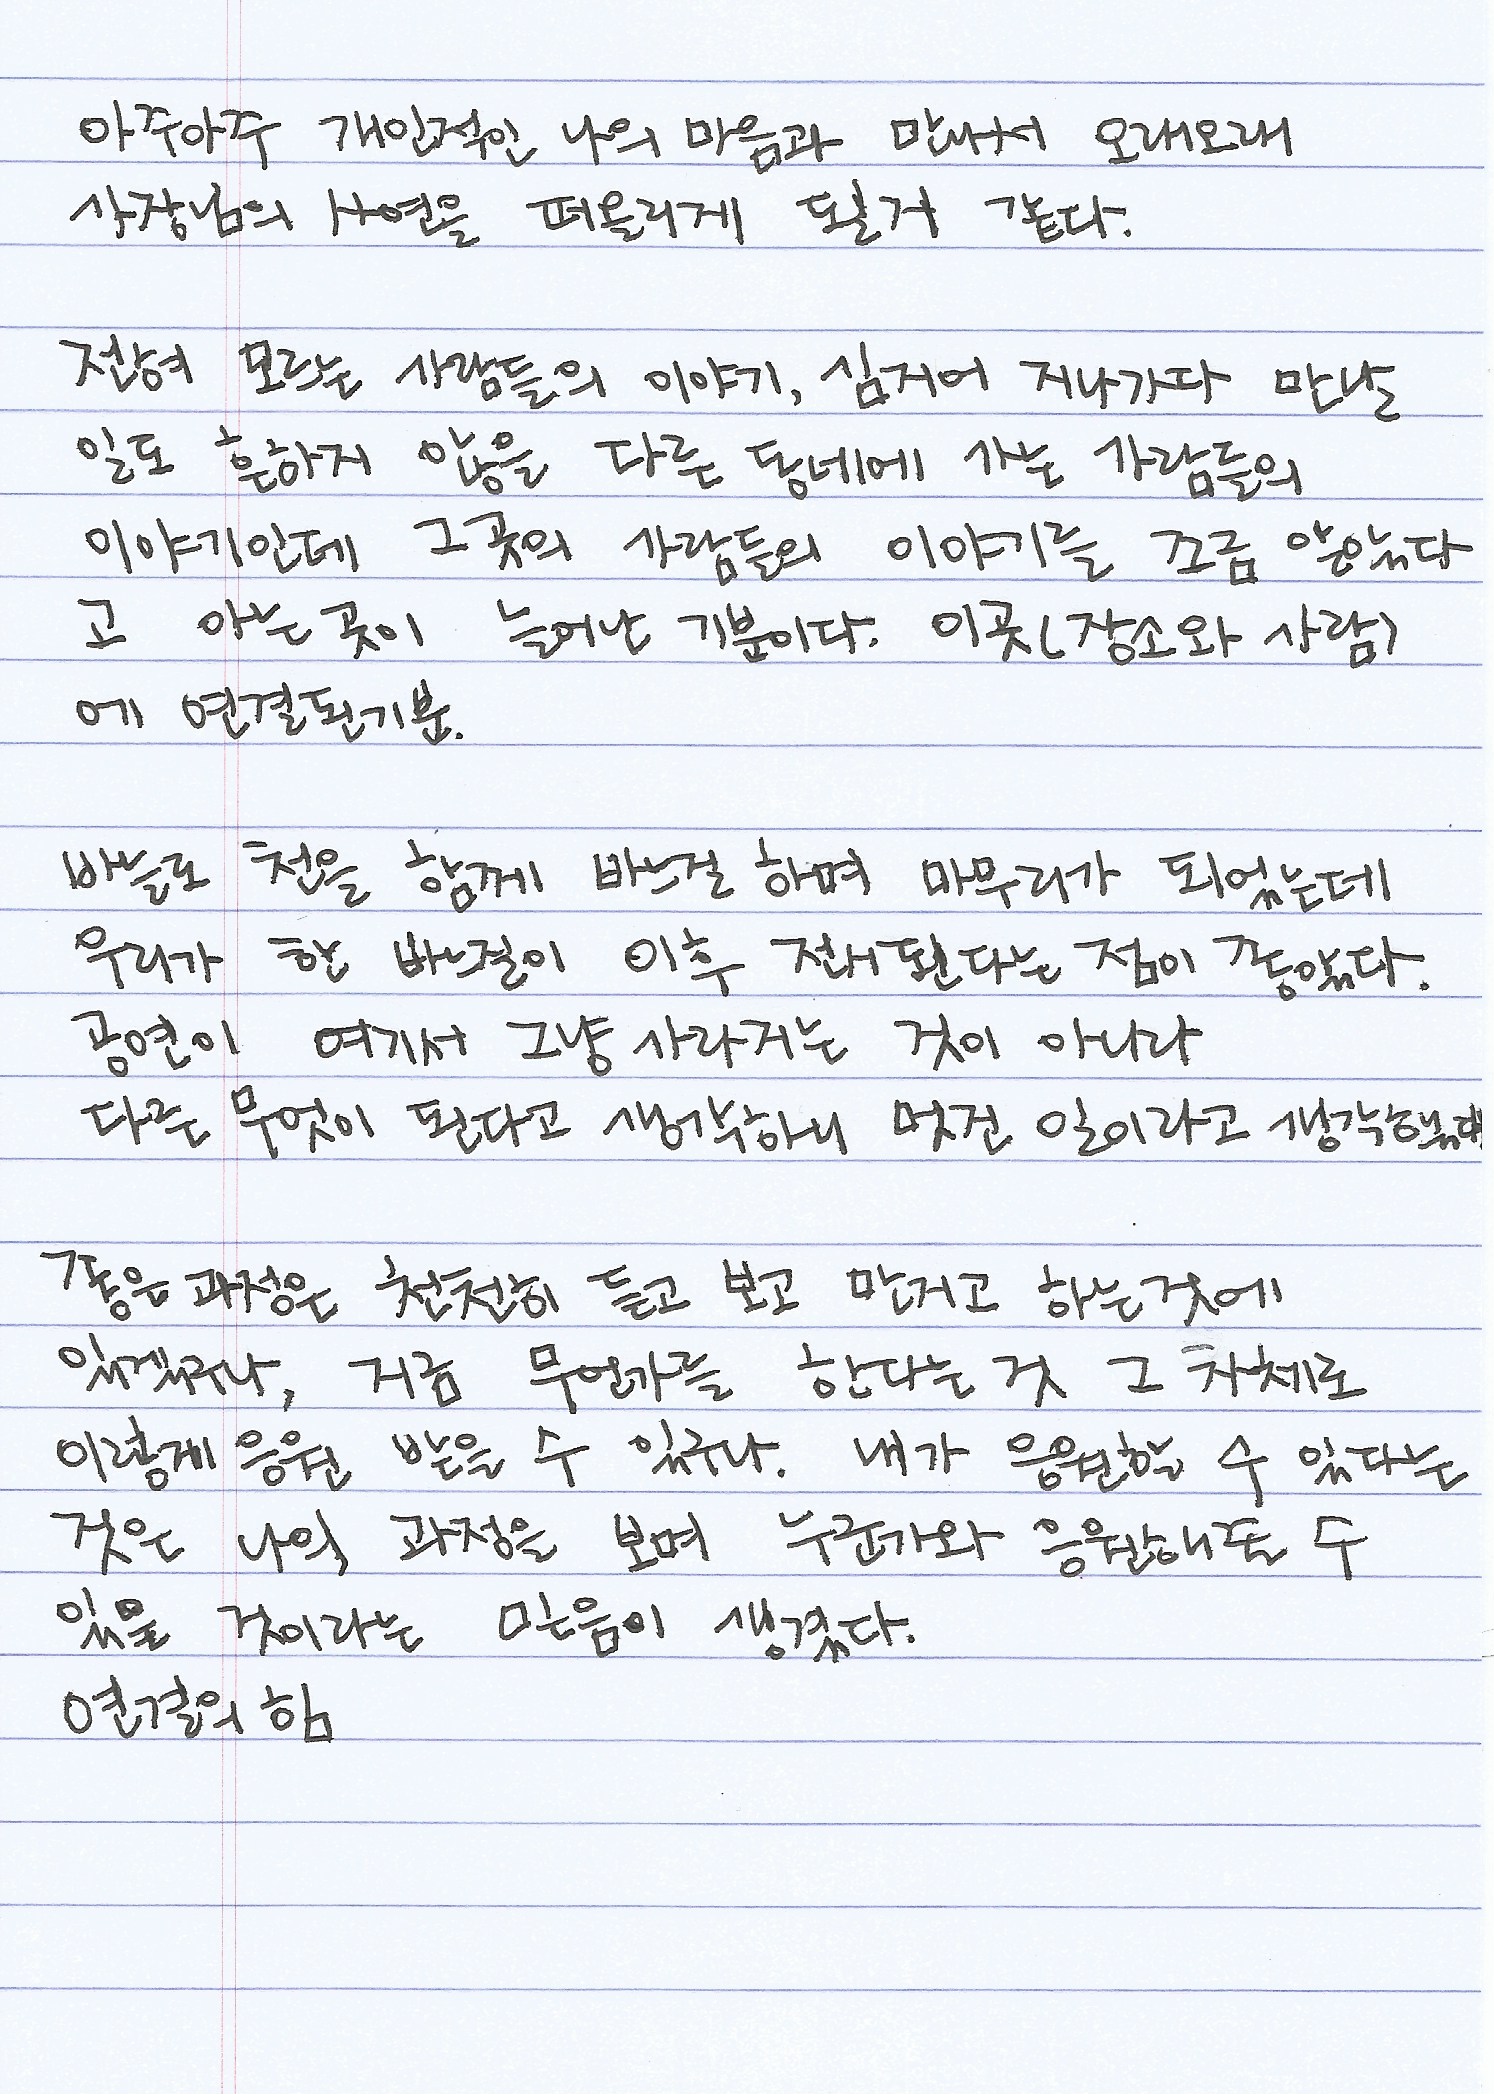 아주아주 개인적인 나의 마음과 만나서 오래오래
사장님의 사연을 떠올리게 될거 같다.
전혀 모르는 사람들의 이야기, 심지어 지나가다 만날
일도 흔하지 않을 다른 동네에 사는 사람들의
이야기인데 그곳의 사람들의 이야기를 조금 알았다
고 아는 곳이 늘어난 기분이다. 이곳(장소와 사람)
에 연결된기분.
바늘로 천을 함께 바느질 하며 마무리가 되었는데
우리가 한 바느질이 이후 전시된다는 점이 좋았다.
공연이 여기서 그냥 사라지는 것이 아니라
다른 무엇이 된다고 생각하니 멋진 일이라고 생각했다
좋은 과정은 천천히 듣고 보고 만지고 하는것에
있겠구나, 지금 무언가를 한다는 것 그 자체로
이렇게 응원 받을 수 있구나. 내가 응원할 수 있다는
것은 나의 과정을 보며 누군가와 응원해줄 수
있을 것이라는 믿음이 생겼다.
연결의 힘